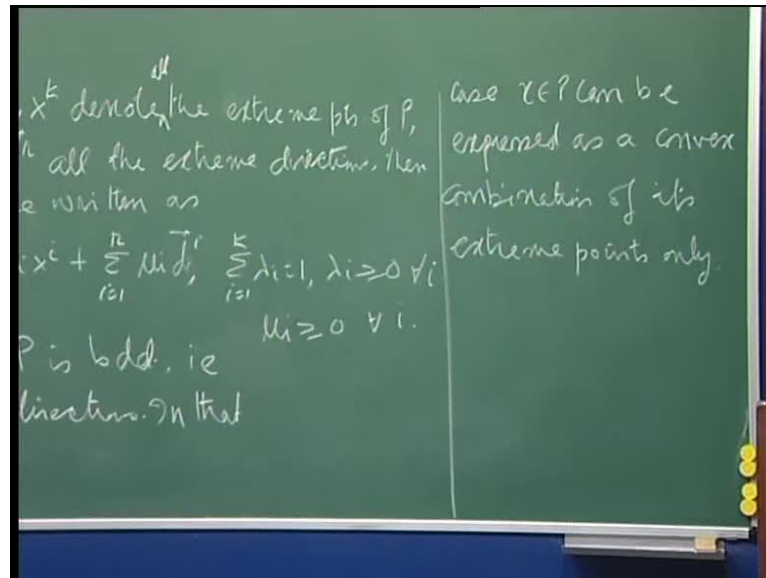 all
, x^k denote the extreme pts of P,
all the extreme directions. Then
e written as
i x^i + \sum_{i=1}^{r} μi d^i, \sum_{i=1}^{k} λi=1, λi≥0 ∀i
μi ≥ 0 ∀ i.
P is bdd. ie
directions. In that
case x∈P can be
expressed as a convex
combination of its
extreme points only.